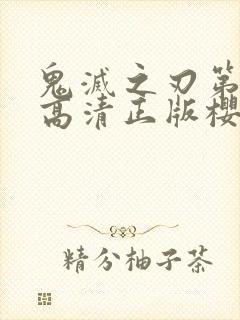 鬼滅之刃第
高清正版櫻
精分柚子茶